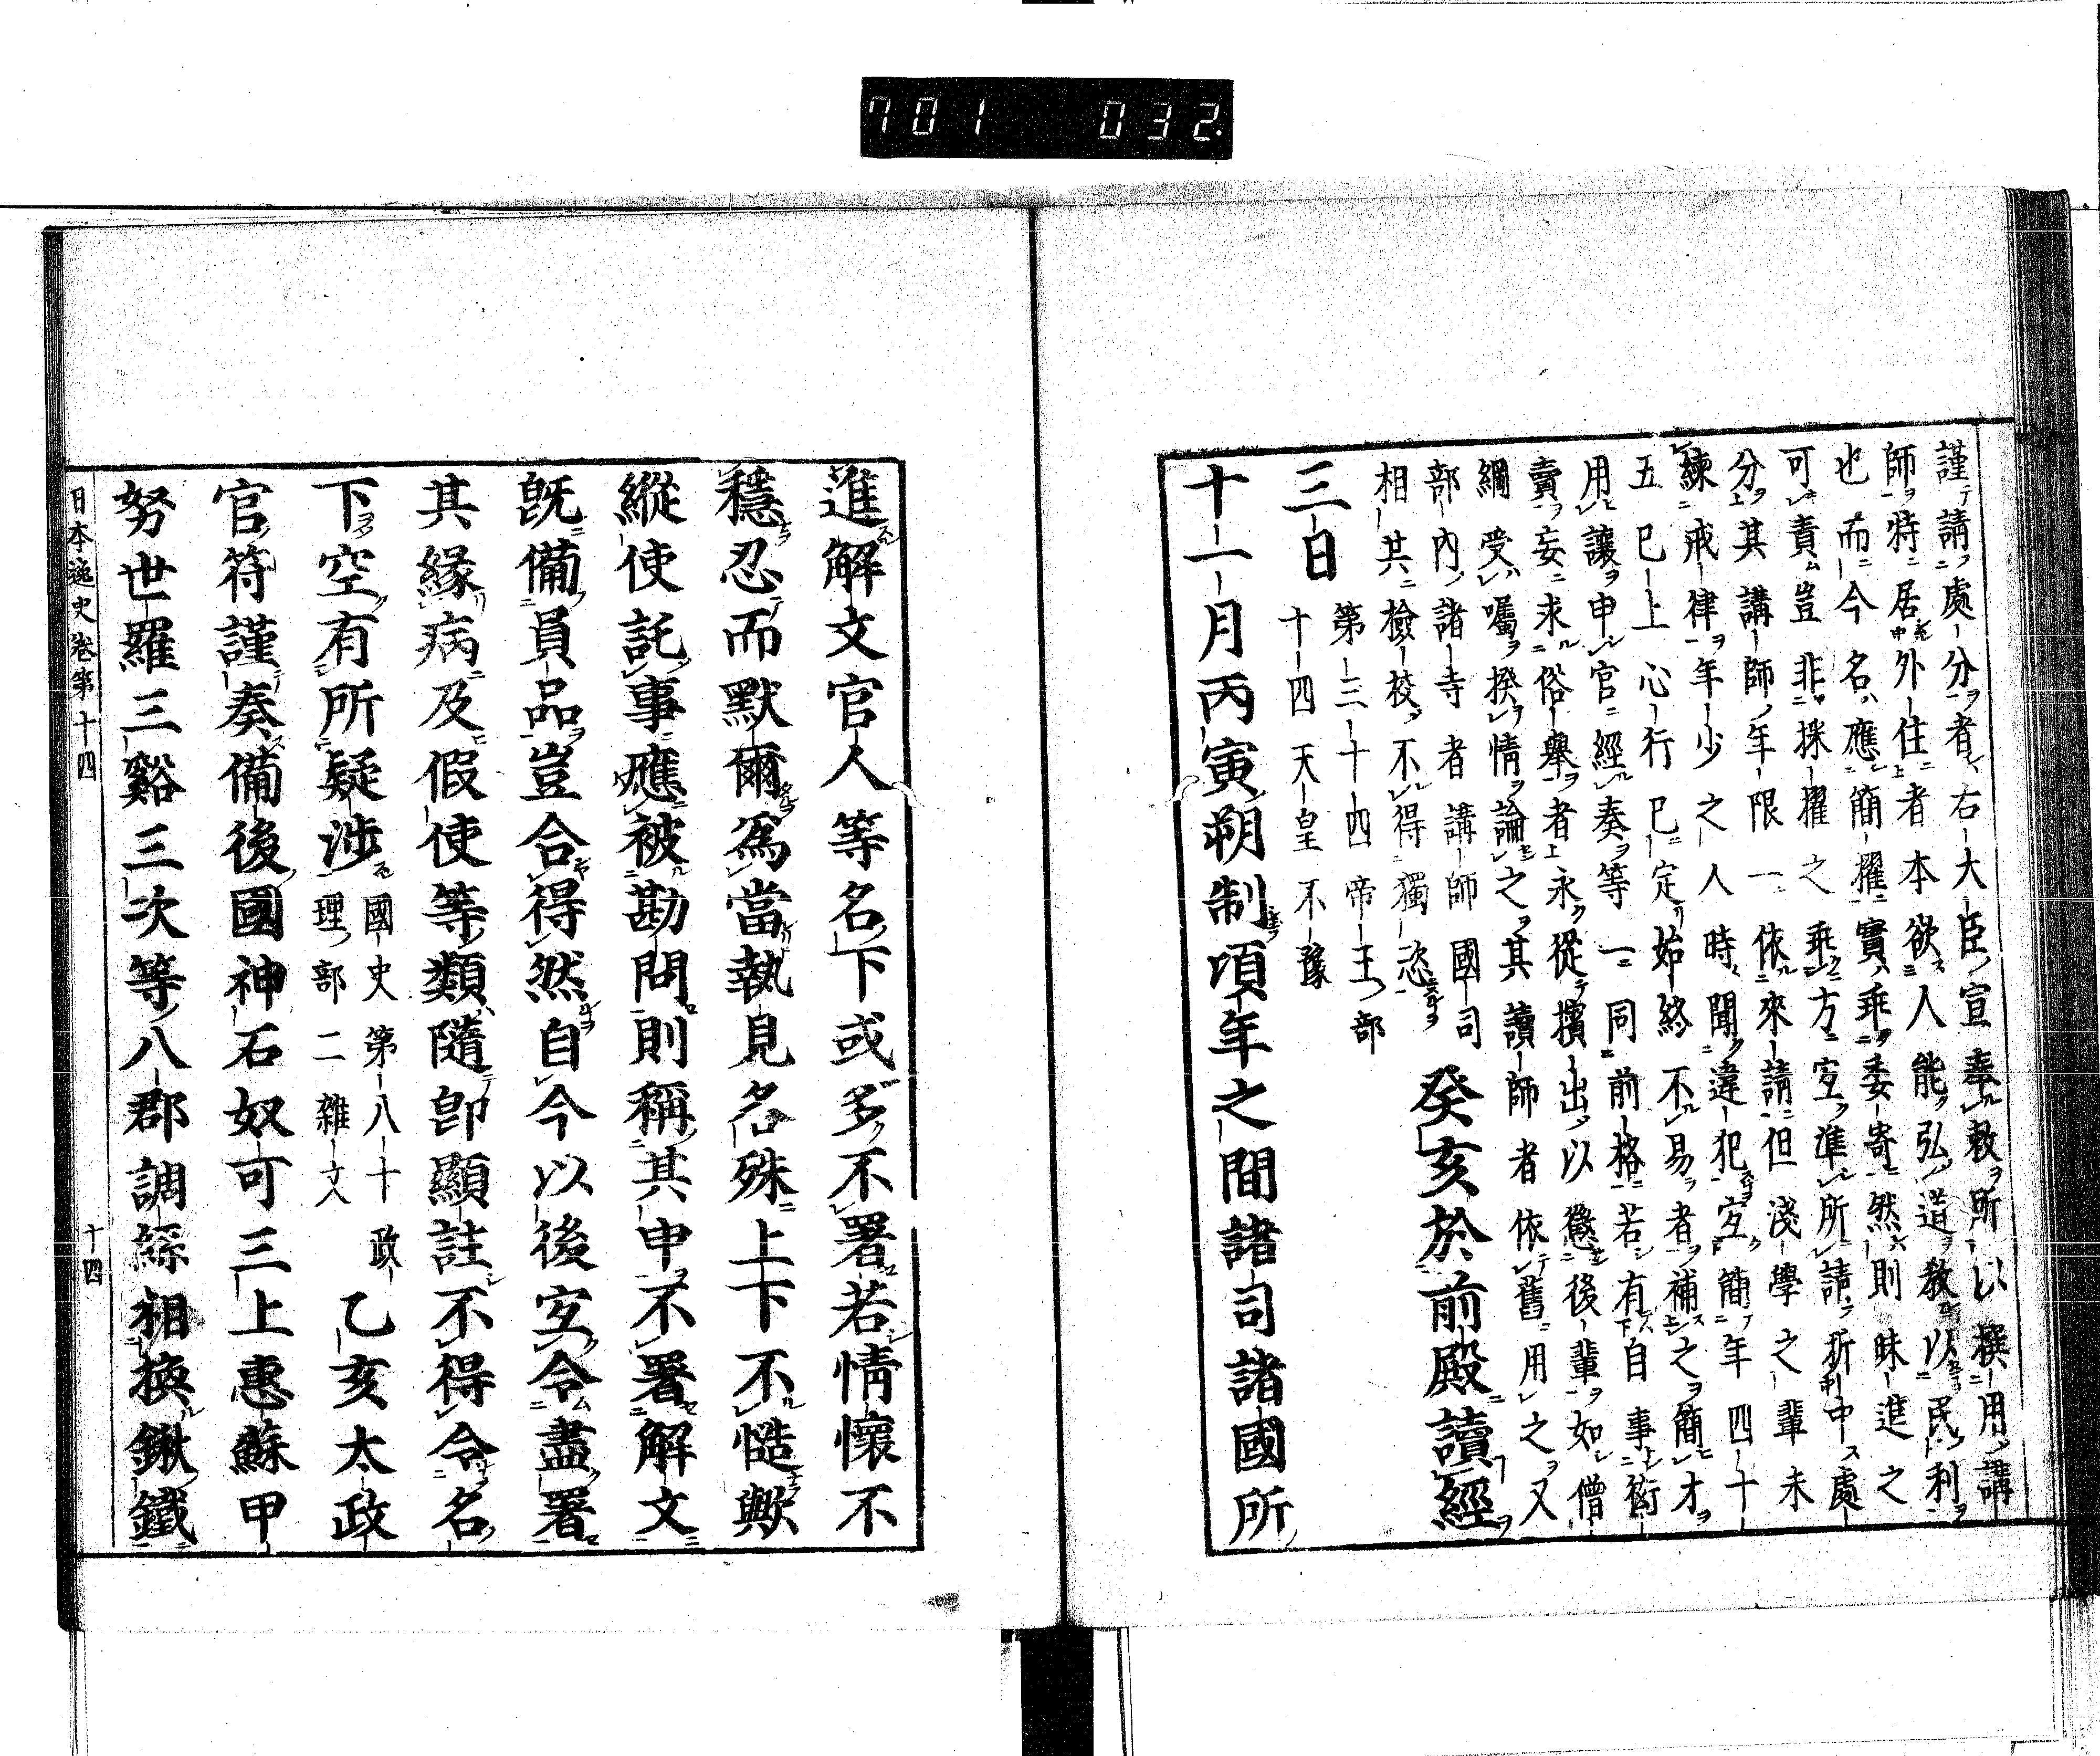 701 032
謹請處分者右大臣宣奉敕所以撰用講
師特居外住者本欲人能弘道敎以民利
也而今名應簡擢實乖委寄然則昧進之
可責豈非採擢之乖方宜準所請折中處
分其講師年限一依來請但淺學之輩未
練戒律年少之人時聞違犯宜簡年四十
五已上心行已定始終不易者補之簡才
用讓申官經奏等一同前格若有自事衒
賣妄求俗舉者永從擯出以懲後輩如僧
綱受囑揆情論之其讀師者依舊用之又
部內諸寺者講師國司
相共檢校不得獨恣
癸亥於前殿讀經
三日
第三十四帝王部
十四天皇不豫
十一月丙寅朔制頃年之間諸司諸國所
進解文官人等名下或多不署若情懷不
穩忍而默爾爲當執見名殊上下不愜歟
縱使託事應被勘問則稱其申不署解文
旣備員品豈合得然自今以後宜令盡署
其緣病及假使等類隨卽顯註不得令名
下空有所疑涉
國史第八十政
理部二雜文
乙亥太政
官符謹奏備後國神石奴可三上惠蘇甲
努世羅三谿三次等八郡調絲相換鍬鐵
日本逸史卷第十四
十四